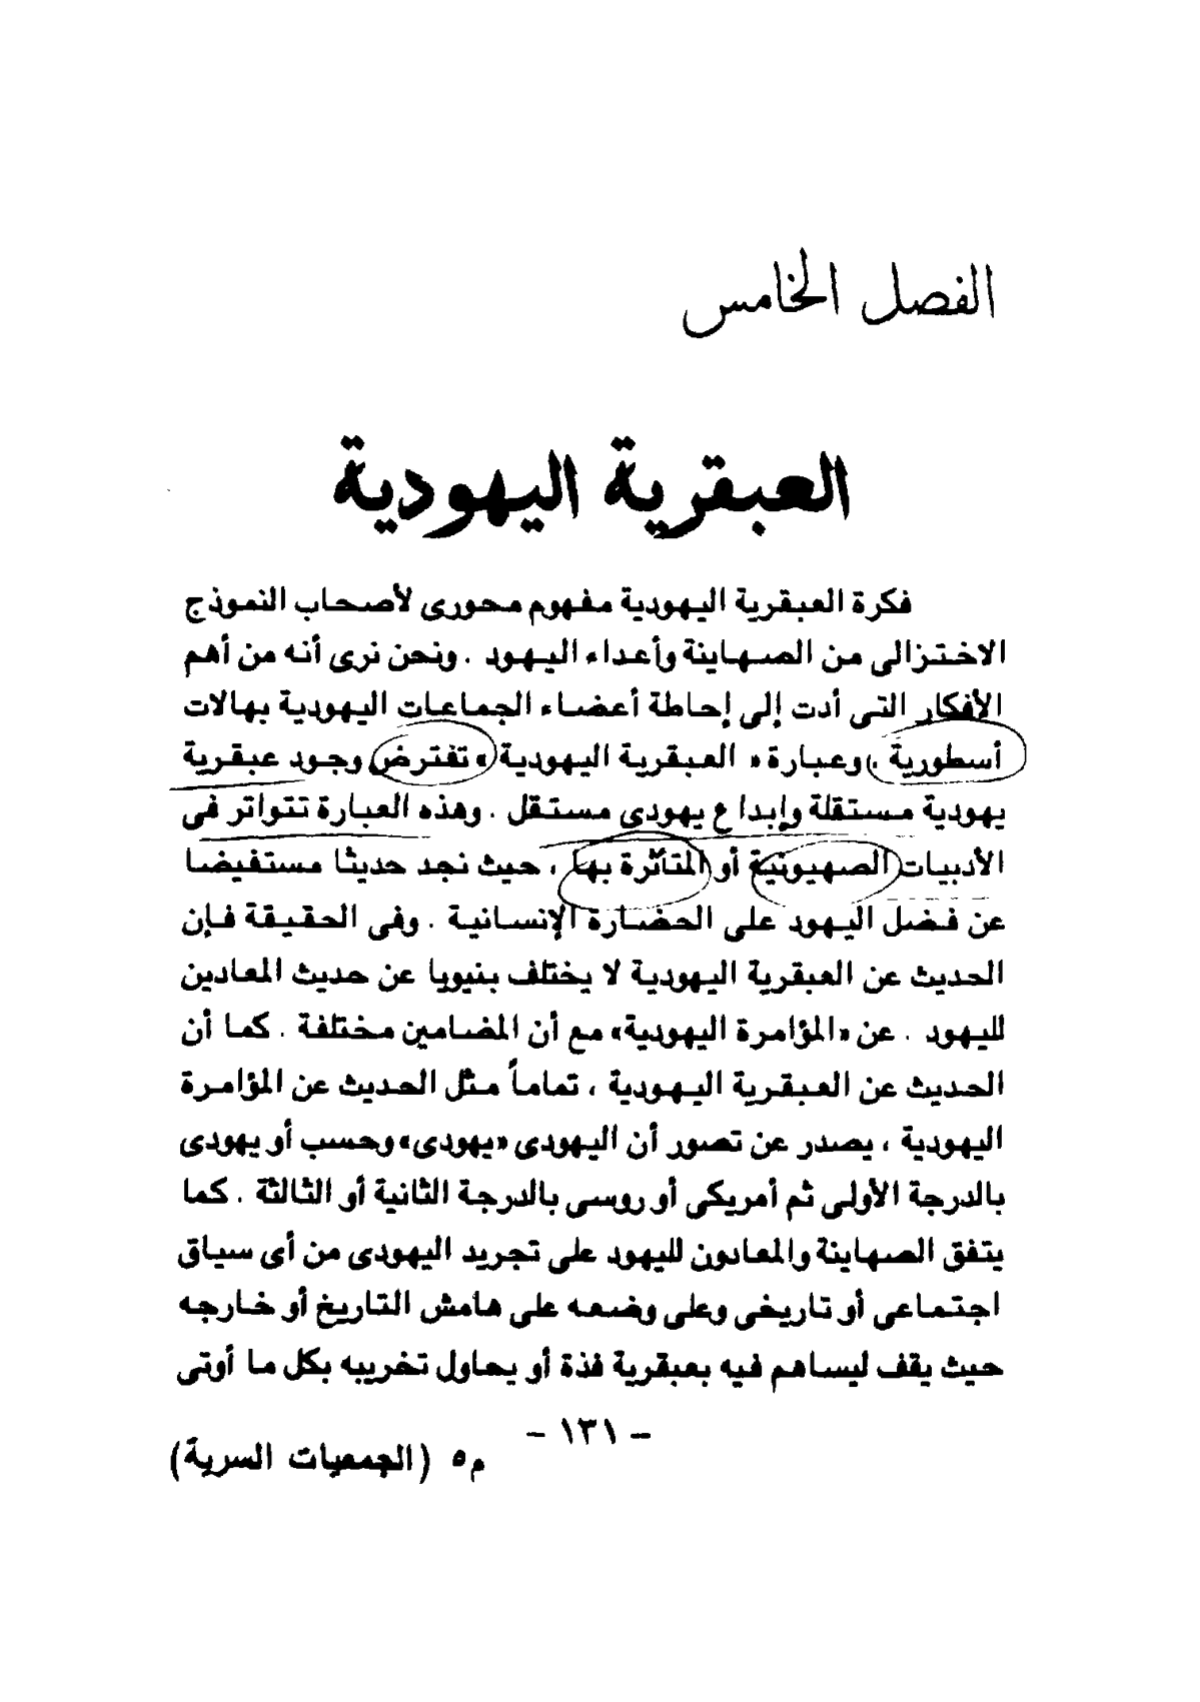 الفصل الخامس
العبقرية اليهودية
فكرة العبقرية اليهودية مفهوم محورى لأصحاب النموذج
الاختزالى من الصهاينة وأعداء اليهود . ونحن نرى أنه من أهم
الأفكار التى أدت إلى إحاطة أعضاء الجماعات اليهودية بهالات
أسطورية ، وعبارة « العبقرية اليهودية » تفترض وجود عبقرية
يهودية مستقلة وإبداع يهودى مستقل . وهذه العبارة تتواتر فى
الأدبيات الصهيونية أو المتأثرة بها ، حيث نجد حديثا مستفيضا
عن فضل اليهود على الحضارة الإنسانية . وفى الحقيقة فإن
الحديث عن العبقرية اليهودية لا يختلف بنيويا عن حديث المعادين
لليهود . عن «المؤامرة اليهودية» مع أن المضامين مختلفة . كما أن
الحديث عن العبقرية اليهودية ، تماماً مثل الحديث عن المؤامرة
اليهودية ، يصدر عن تصور أن اليهودى «يهودى» وحسب أو يهودى
بالدرجة الأولى ثم أمريكى أو روسى بالدرجة الثانية أو الثالثة . كما
يتفق الصهاينة والمعادون لليهود على تجريد اليهودى من أى سياق
اجتماعى أو تاريخى وعلى وضعه على هامش التاريخ أو خارجه
حيث يقف ليساهم فيه بعبقرية فذة أو يحاول تخريبه بكل ما أوتى
- ١٣١ -
م٥ (الجمعيات السرية)